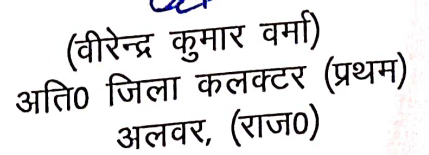 (वीरेन्द्र कुमार वर्मा)
अति0 जिला कलक्टर (प्रथम)
अलवर, (राज0)